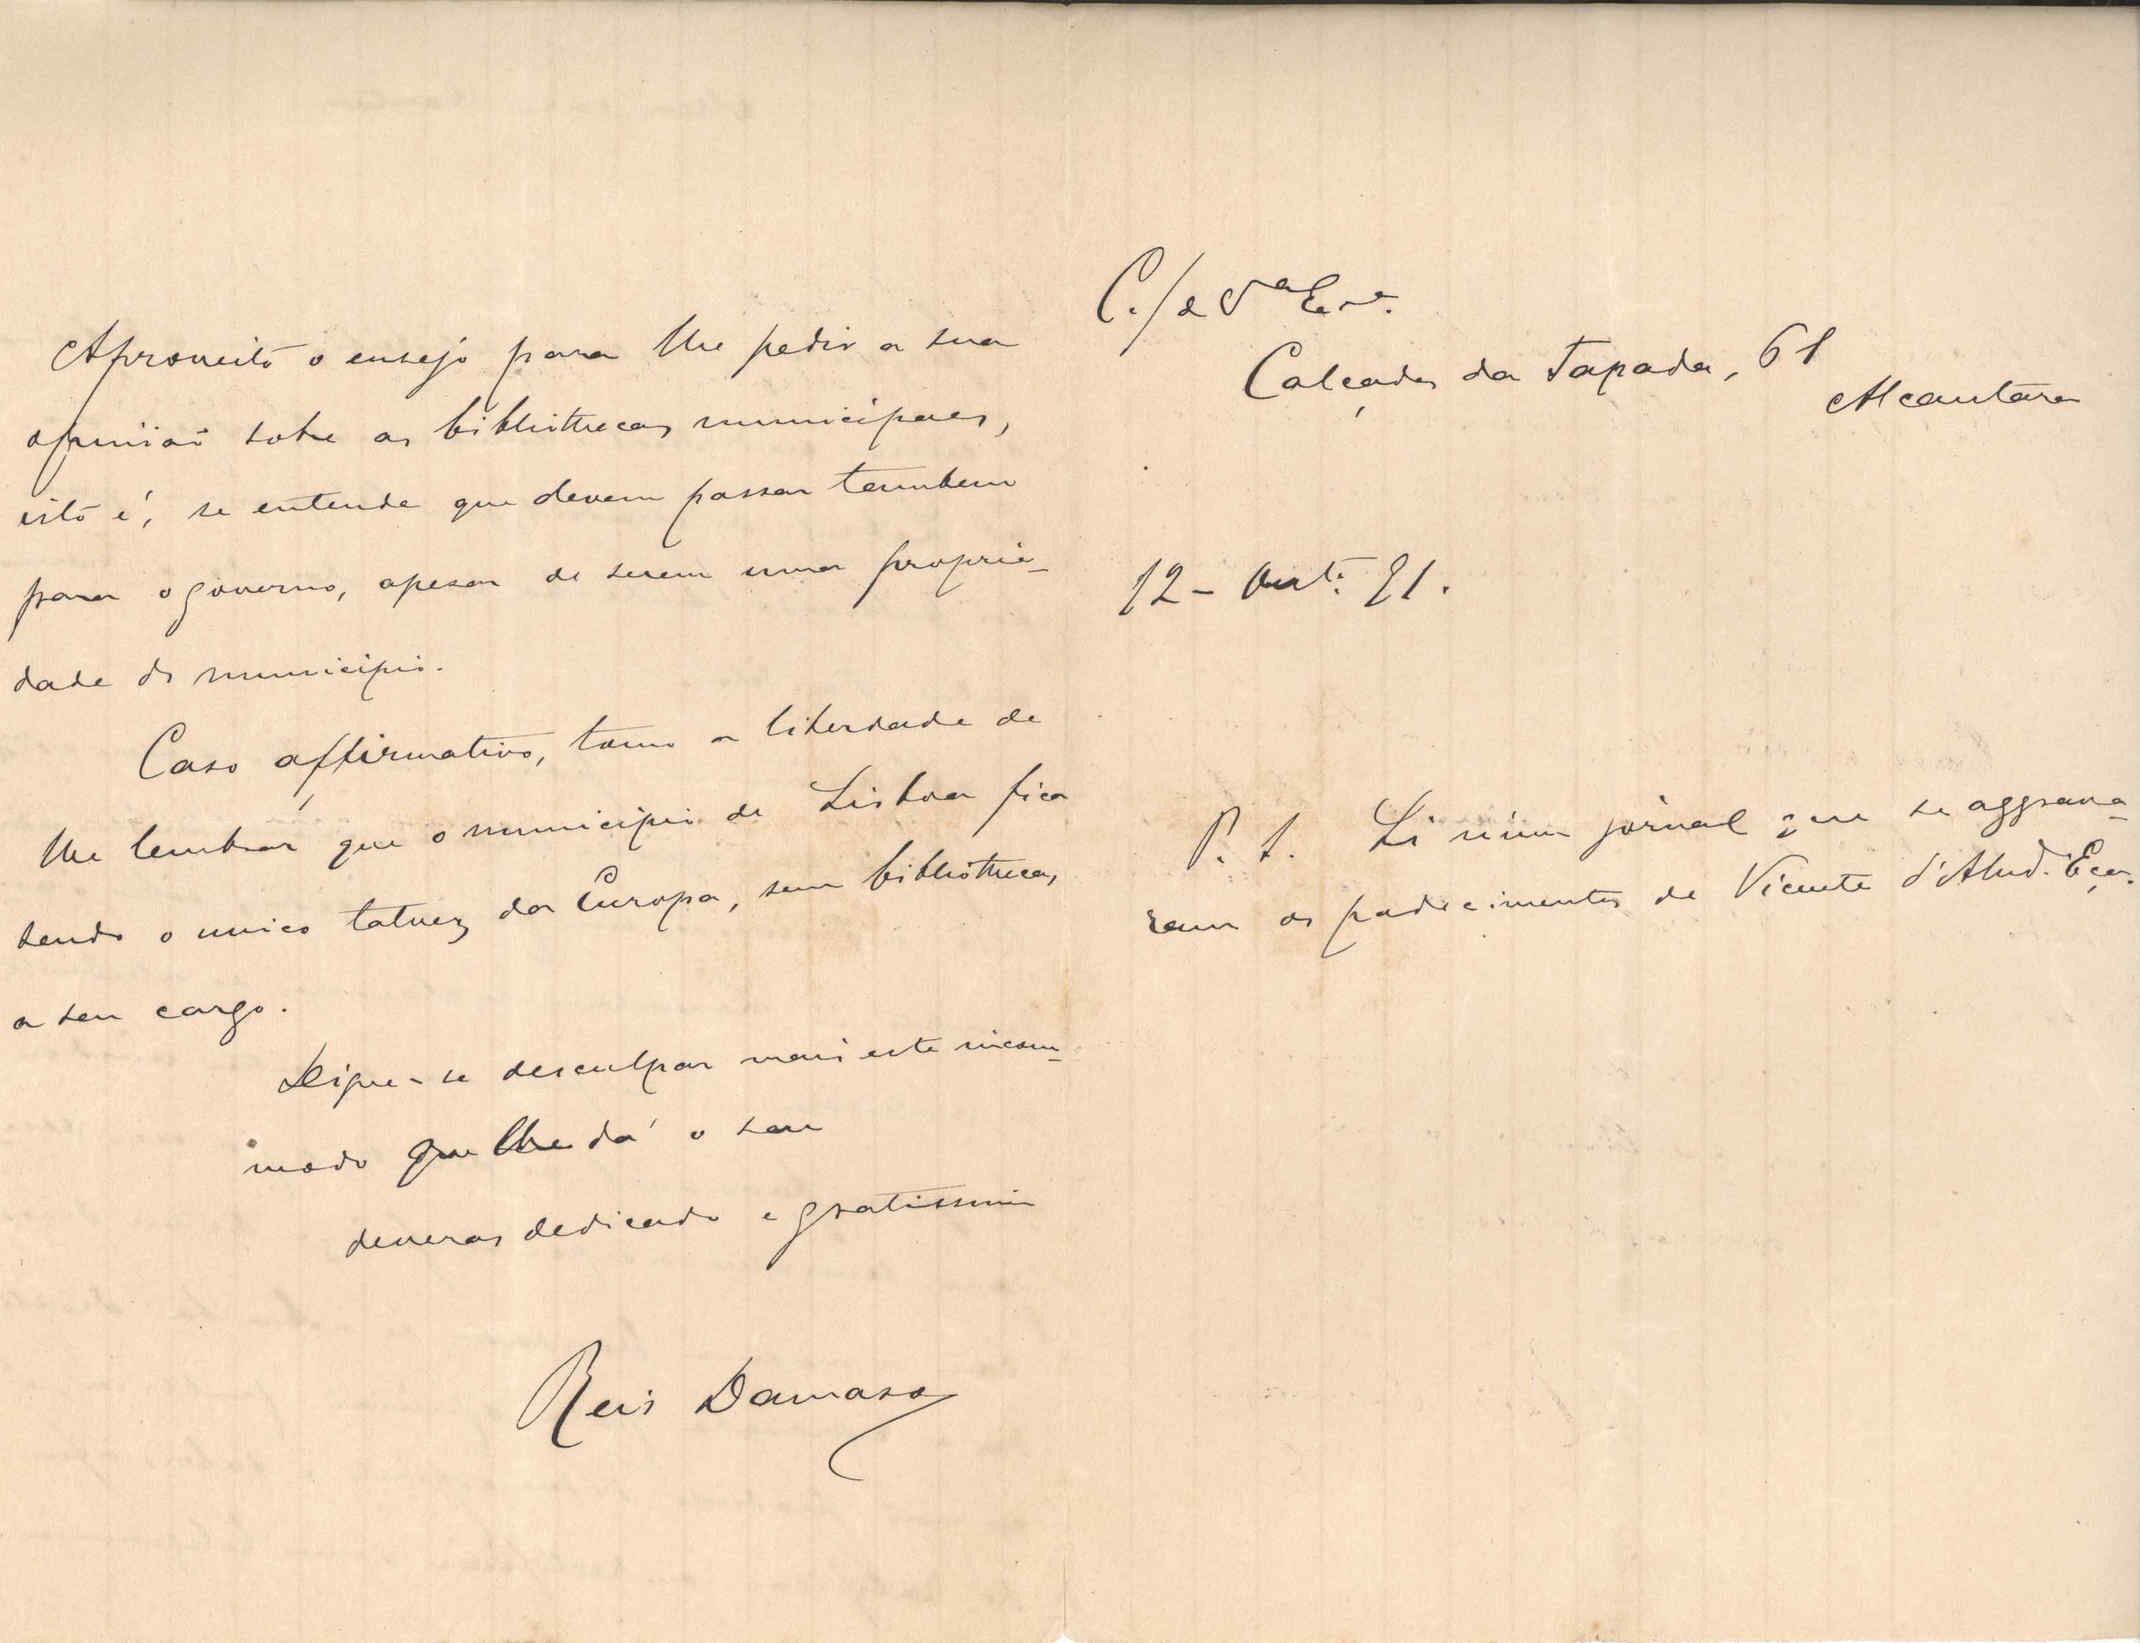 Aproveito o ensejo para lhe pedir a sua
opinião sobre as bibliothecas municipaes,
isto é, se entende que devem passar tambem
para o governo, apesar de serem uma proprie-
dade do municipio.
Caso affirmativo, tomo a liberdade de
lhe lembrar que o municipio de Lisboa fica
sendo o unico talvez da Europa, sem bibliothecas
a seu cargo.
Digne-se desculpar mais este incom-
modo que lhe dá o seu
deveras dedicado e gratissimo
Reis Damaso
C. / de V.ª Ex.ª
Calçada da Tapada, 61
Alcantara
12 - Out.º 91.
P. S. Li n'um jornal que se aggrava-
ram os padecimentos de Vicente d'Almd. Eça.